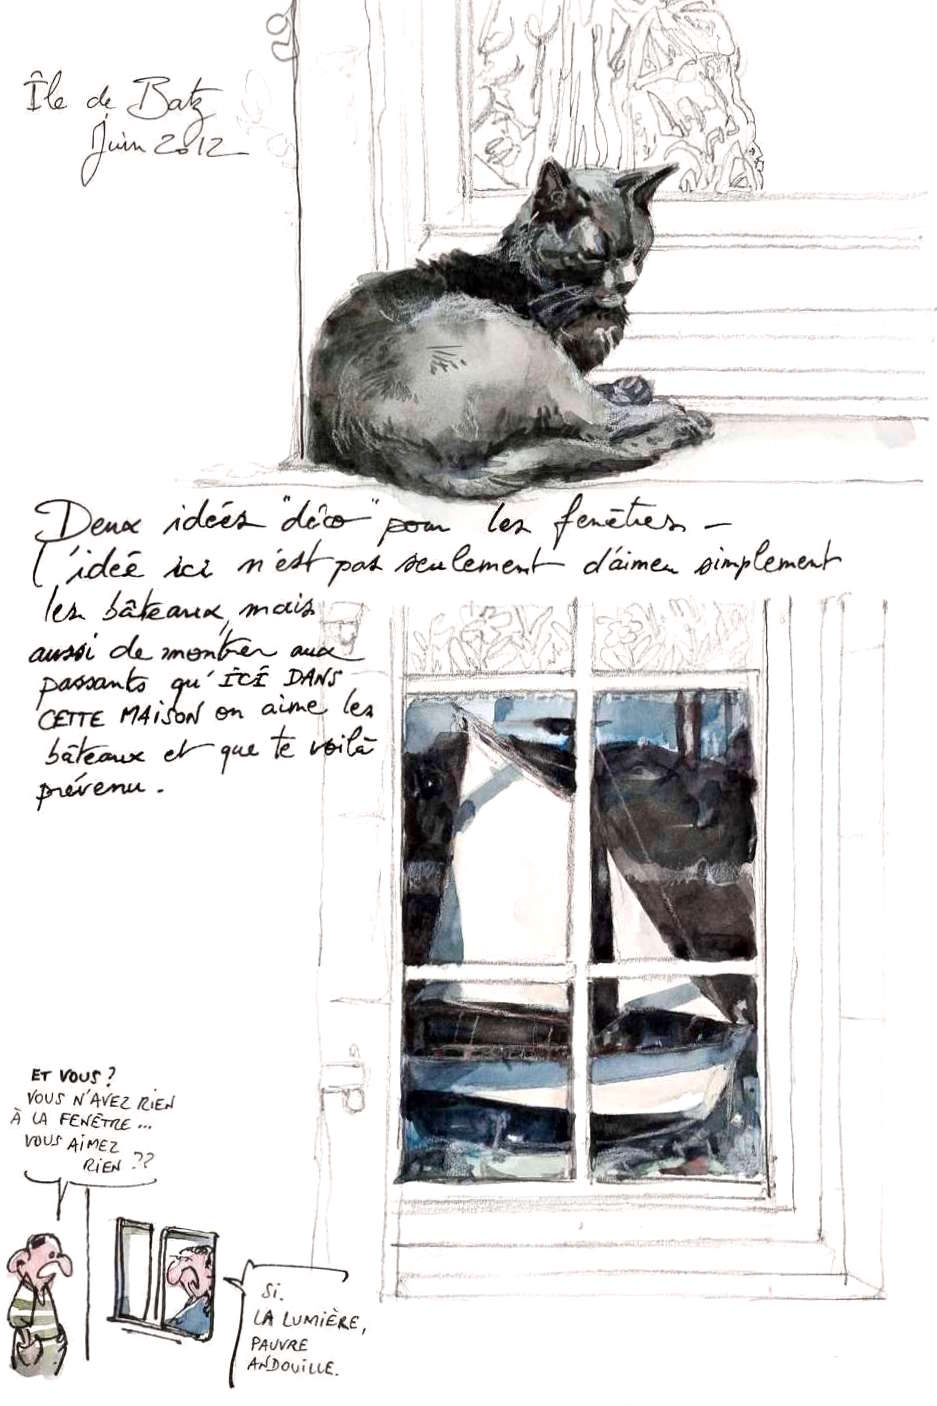 Île de Batz
Juin 2012
Deux idées "déco" pour les fenêtres –
L'idée ici n'est pas seulement d'aimer simplement
les bâteaux, mais
aussi de montrer aux
passants qu'ICI DANS
CETTE MAISON on aime les
bâteaux et que te voilà
prévenu.
ET VOUS?
VOUS N'AVEZ RIEN
À LA FENÊTRE...
VOUS AIMEZ
RIEN ??
SI.
LA LUMIÈRE,
PAUVRE
ANDOUILLE.